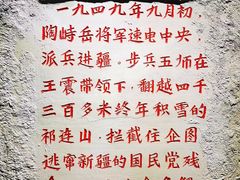 一九四九年九月初，
陶峙岳将军速电中央，
派兵进疆。步兵五师在
王震带领下，翻越四千
三百多米终年积雪的
祁连山，拦截住企图
逃窜新疆的国民党残